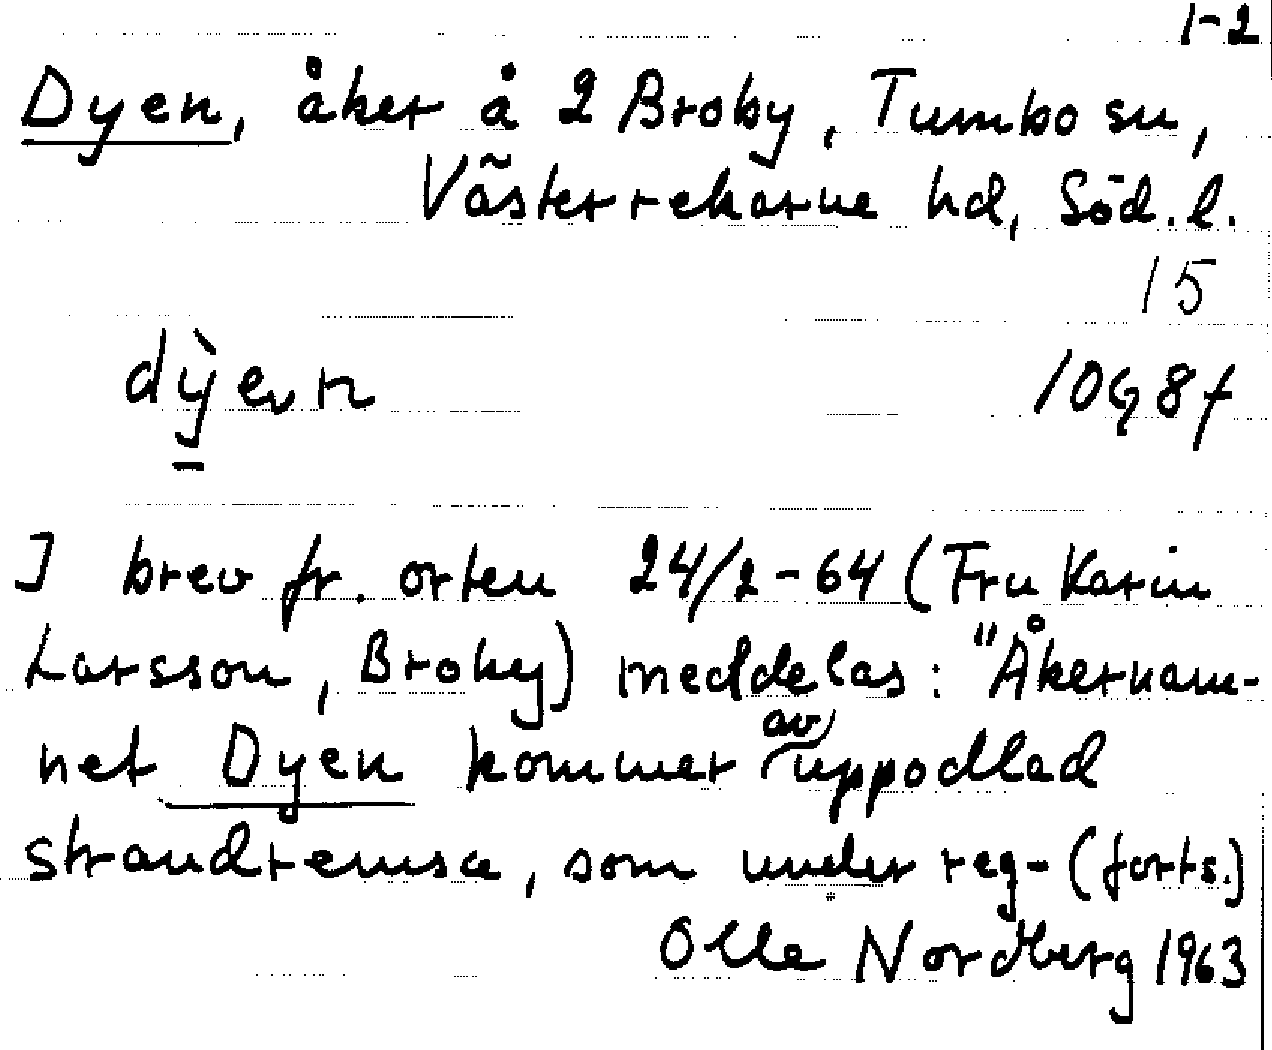 1-2
Dyen, åker å 2 Broby, Tumbo sn,
Västerrekarne hd, Söd. l.
15
dỳen
10G8f
I brev fr. orten 24/2-64 (Fru Karin
Larsson, Broby) meddelas: "Åkernam-
net Dyen kommer av uppodlad
strandremsa, som under reg- (forts.)
Olle Nordberg 1963